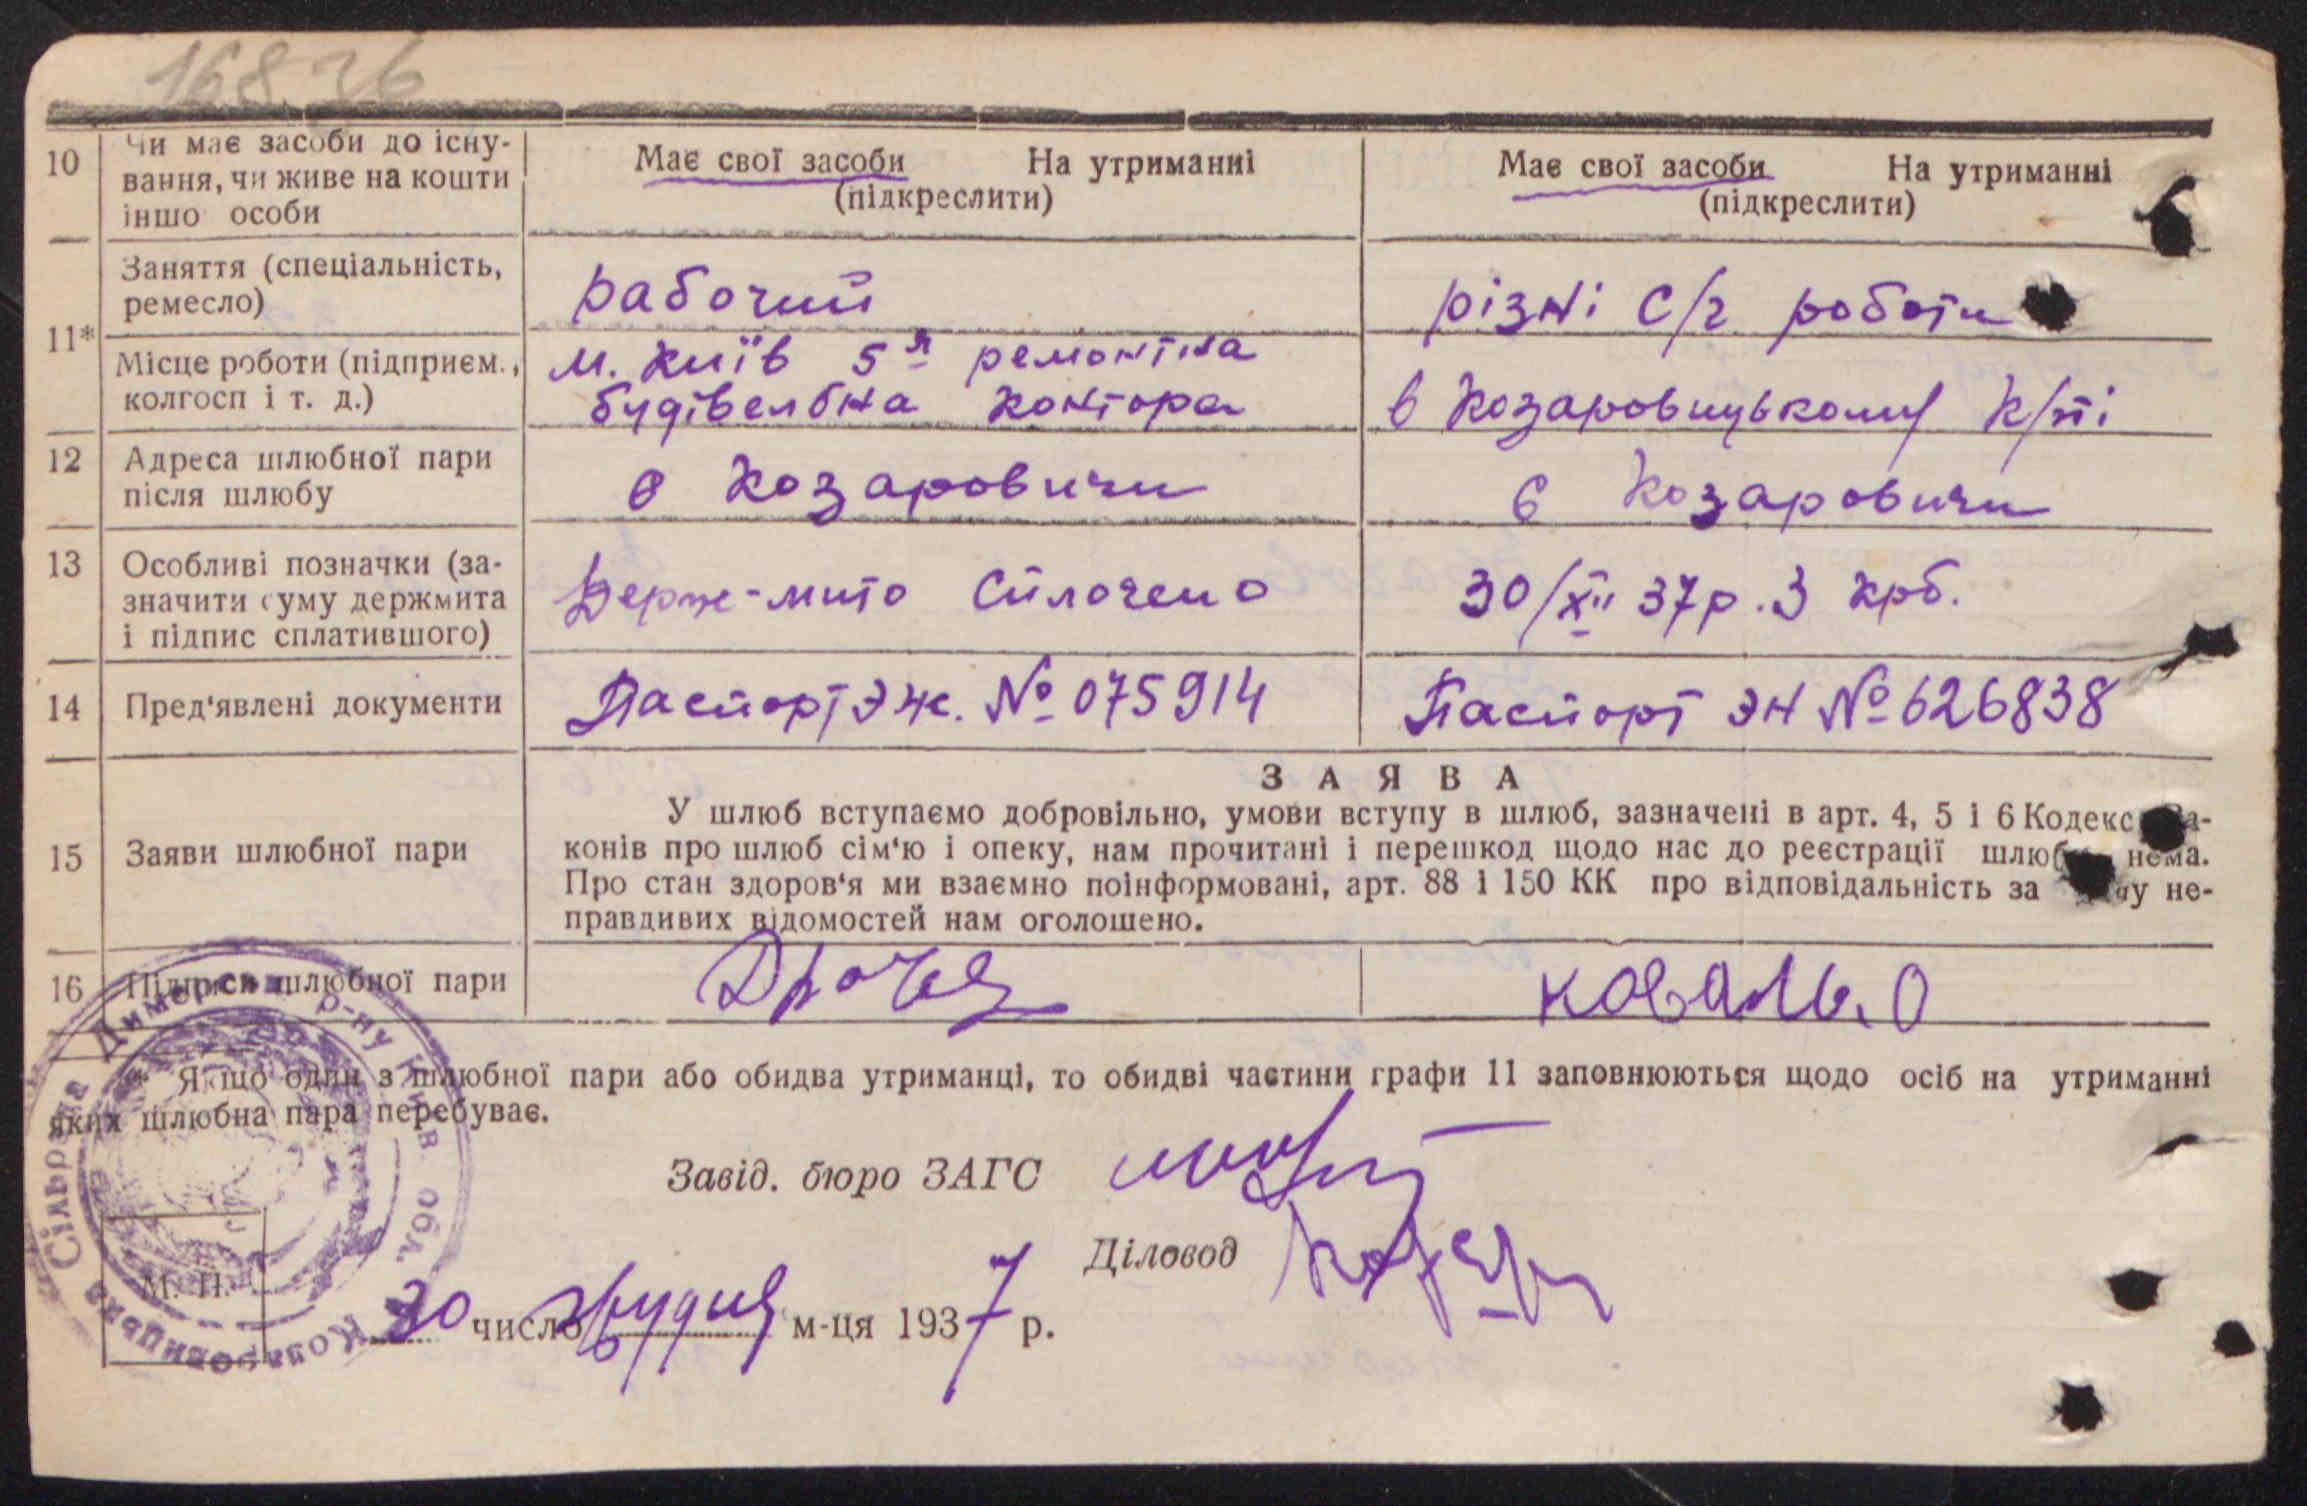 16826
10 Чи має засоби до існу-
вання, чи живе на кошти
іншо особи
Має свої засоби На утриманні
(підкреслити)
Має свої засоби На утриманні
(підкреслити)
11*
Заняття (спеціальність,
ремесло)
рабочий
різні с/г роботи
Місце роботи (підприєм.,
колгосп і т. д.)
м. Київ 5я ремонтна
будівельна контора
в Козаровицькому к/гті
12 Адреса шлюбної пари
після шлюбу
с Козаровичи
с Козаровичи
13 Особливі позначки (за-
значити суму держмита
і підпис сплатившого)
Держ-мито сплочено
30/XII 37р. 3 крб.
14 Пред'явлені документи
Паспорт ЭЖ. № 075914
Паспорт ЭН № 626838
15 Заяви шлюбної пари
ЗАЯВА
У шлюб вступаємо добровільно, умови вступу в шлюб, зазначені в арт. 4, 5 і 6 Кодекс За-
конів про шлюб сім'ю і опеку, нам прочитані і перешкод щодо нас до реєстрації шлюб нема.
Про стан здоров'я ми взаємно поінформовані, арт. 88 і 150 КК про відповідальність за у не-
правдивих відомостей нам оголошено.
16 Підписи шлюбної пари
Коваль. О
* Якщо один з шлюбної пари або обидва утриманці, то обидві частини графи 11 заповнюються щодо осіб на утриманні
яких шлюбна пара перебуває.
Завід. бюро ЗАГС
Діловод
М. П.
30 число грудня м-ця 1937 р.
Козаровицька Сільрада Димерськ. р-ну Київ обл.